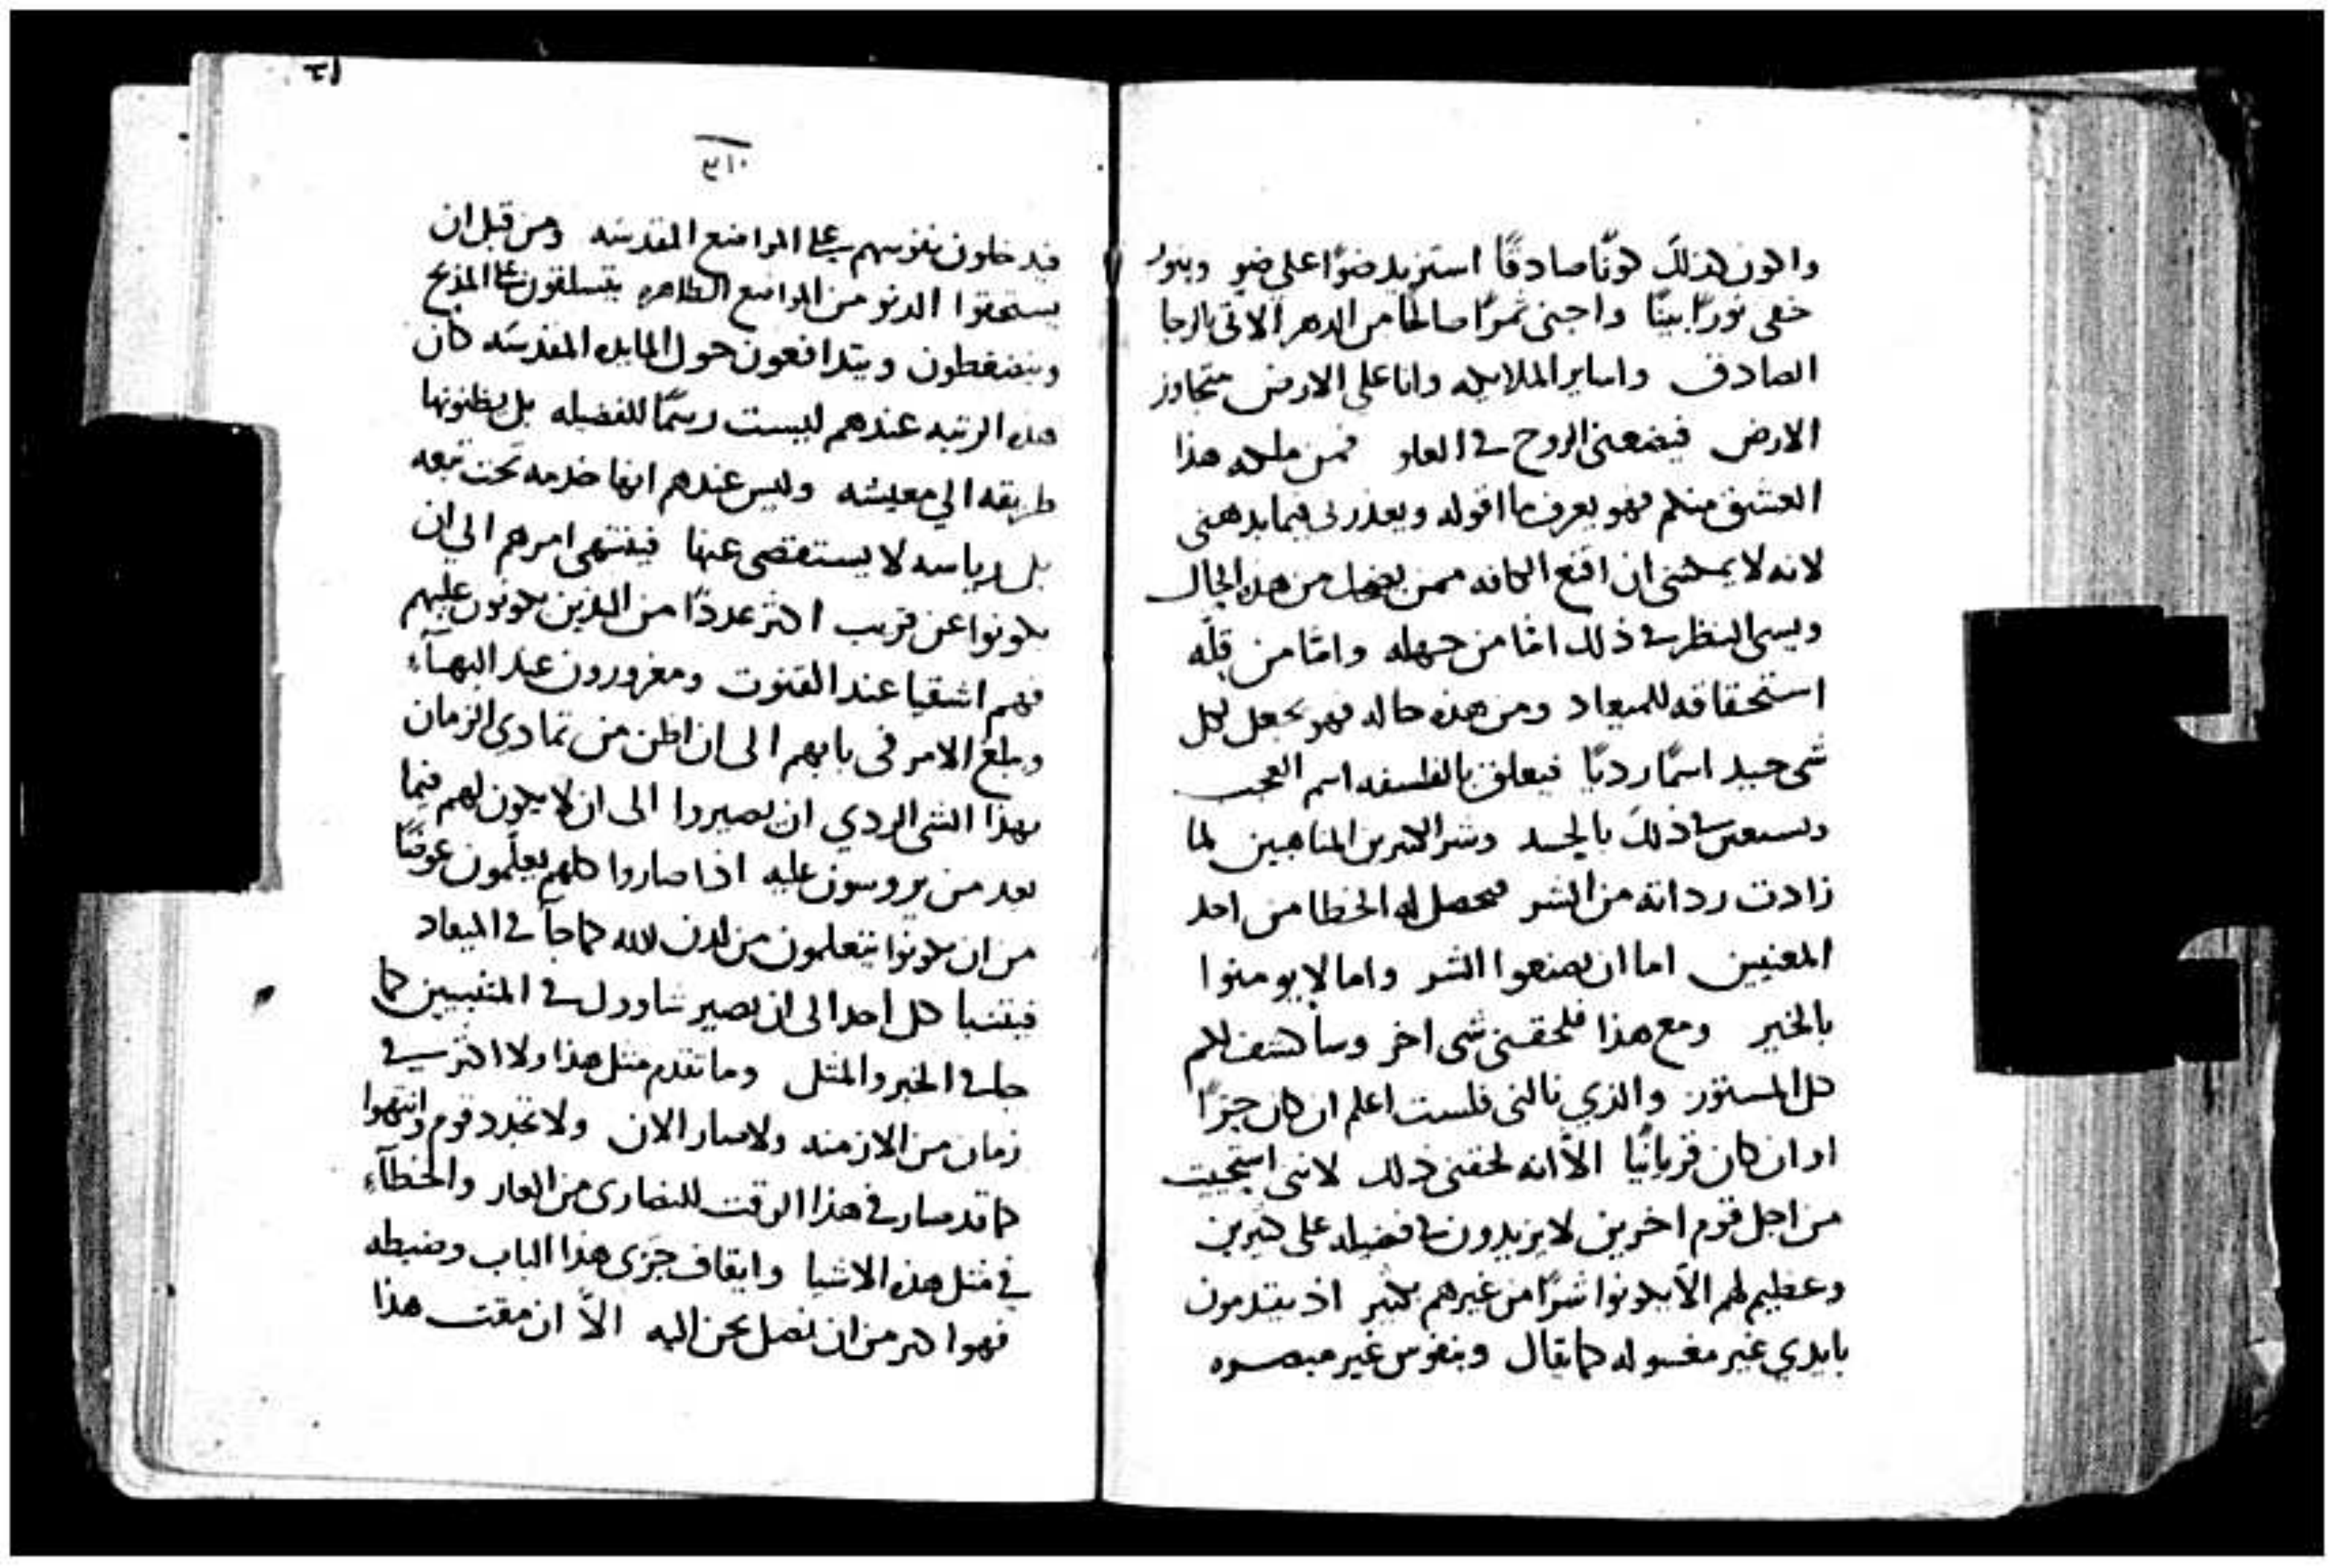 واكون كذلك كونًا صادقًا استزيد ضوًا على ضو وبنور
خفى نورًا بينًا واجنى ثمرًا صالحًا من الدهر الاتى بالرجا
الصادق واساير الملايكه وانا على الارض متجاوز
الارض فيضعنى الروح فى العلو فمن ملكه هذا
العشق منكم فهو يعرف ما اقوله ويعذرنى فيما يدهنى
لانه لا يمكننى ان اقنع الكافه ممن يضحك من هذه الحال
ويسى النظر فى ذلك امّا من جهله وامّا من قلّه
استحقاقه للميعاد ومن هذه حاله فهو يجعل لكل
شى جيد اسمًا رديًا فيعلق بالفلسفه اسم العجب
فى ذلك بالحسد وشر الكثرين لما
زادت رداته من الشر فيحصل له الخطا من احد
المعنيين اما ان يصنعوا الشر واما لا يومنوا
بالخير ومع هذا فلحقنى شى اخر وساكشف لكم
كل المستور والذي نالنى فلست اعلم ان كان جزًا
او ان كان قربانيًا الاّ انه لحقنى ذلك لاننى استحيت
من اجل قوم اخرين لا يزيدون فضيله على كثيرين
وعظيم لهم الاّ يكونوا شرًا من غيرهم بكثير اذ يتقدمون
بايدي غير مغسوله كما يقال وبنفوس غير
٣١٠
فيدخلون نفوسهم على المواضع المقدسه ومن قبل ان
يستحقوا الدنو من المواضع الطاهره يتسلقون على المذبح
وينضغطون ويتدافعون حول المايده المقدسه كان
هذه الرتبه عندهم ليست رسمًا للفضيله بل يظنونها
طريقه الي معيشه وليس عندهم انها خدمه تحت تبعه
بل رياسه لا يستقصى عنها فينتهى امرهم الي ان
يكونوا عن قريب اكثر عددًا من الذين يكونون عليهم
فهم اشقيا عند القنوت ومغرورون عند البهآء
وبلغ الامر فى بابهم الى ان اظن من تمادى الزمان
بهذا الشى الردي ان يصيروا الى ان لا يكون لهم فيما
بعد من يروسون عليه اذا صاروا كلهم يعلّمون عوضًا
من ان يكونوا يتعلمون من لدن الله كما جآ فى الميعاد
فيتنبا كل احد الى ان يصير شاوول فى المتنبيين كما
جا فى الخبر والمثل وما تقدم مثل هذا ولا اكثر فى
زمان من الازمنه ولا صار الان ولا تجدد قوم وانتهوا
كما قد صار فى هذا الوقت للنصارى من العار والخطآء
في مثل هذه الاشيا وايقاف جزى هذا الباب وضبطه
فهو اكبر من ان نصل نحن اليه الاّ ان مقت هذا